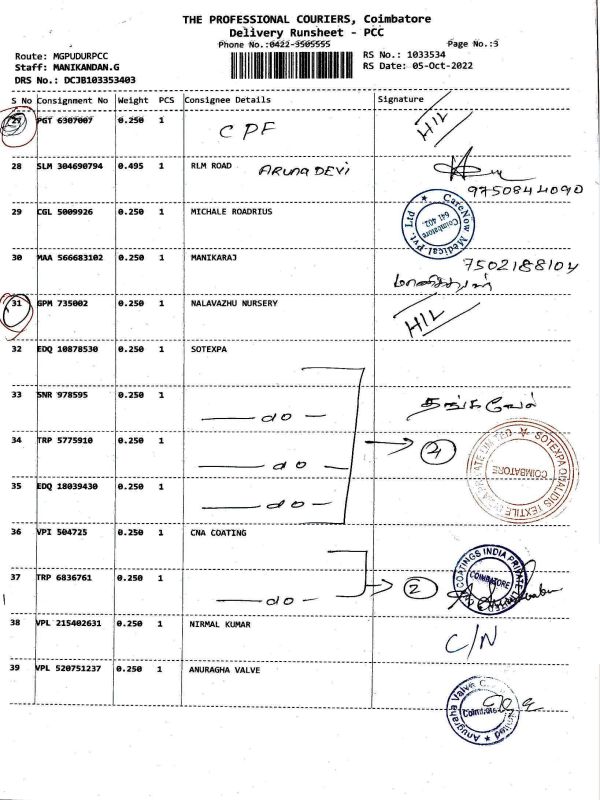 THE PROFESSIONAL COURIERS, Coimbatore
Delivery Runsheet - PCC
Phone No.:0422-3505555
Page No.:3
Route: MGPUDURPCC
RS No.: 1033534
Staff: MANIKANDAN.G
RS Date: 05-Oct-2022
DRS No.: DCJB103353403
S No Consignment No Weight PCS Consignee Details Signature
27 PGT 6307007 0.250 1 CPF H/L
28 SLM 304690794 0.495 1 RLM ROAD ARUNA DEVI
9750844090
29 CGL 5009926 0.250 1 MICHALE ROADRIUS
CareNow Medical Pvt. Ltd
Coimbatore
641 402.
30 MAA 566683102 0.250 1 MANIKARAJ 7502188104
31 GPM 735002 0.250 1 NALAVAZHU NURSERY H/L
32 EDQ 10878530 0.250 1 SOTEXPA
33 SNR 978595 0.250 1 — do — தங்கவேல்
34 TRP 5775910 0.250 1 — do — 4
SOTEXPA QUALIDIS TEXTILE INDIA PRIVATE LIMITED
COIMBATORE
35 EDQ 18039430 0.250 1 — do —
36 VPI 504725 0.250 1 CNA COATING
COATINGS INDIA PRIVATE
COIMBATORE
37 TRP 6836761 0.250 1 — do — 2
38 VPL 215402631 0.250 1 NIRMAL KUMAR C/N
39 VPL 520751237 0.250 1 ANURAGHA VALVE
Anugraha Valve
Coimbatore